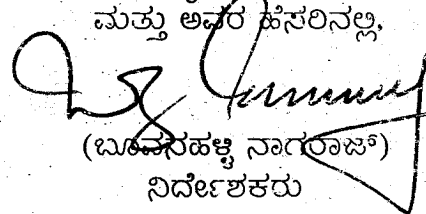 ಮತ್ತು ಅವರ ಹೆಸರಿನಲ್ಲಿ,
(ಬೂವನಹಳ್ಳಿ ನಾಗರಾಜ್)
ನಿರ್ದೇಶಕರು